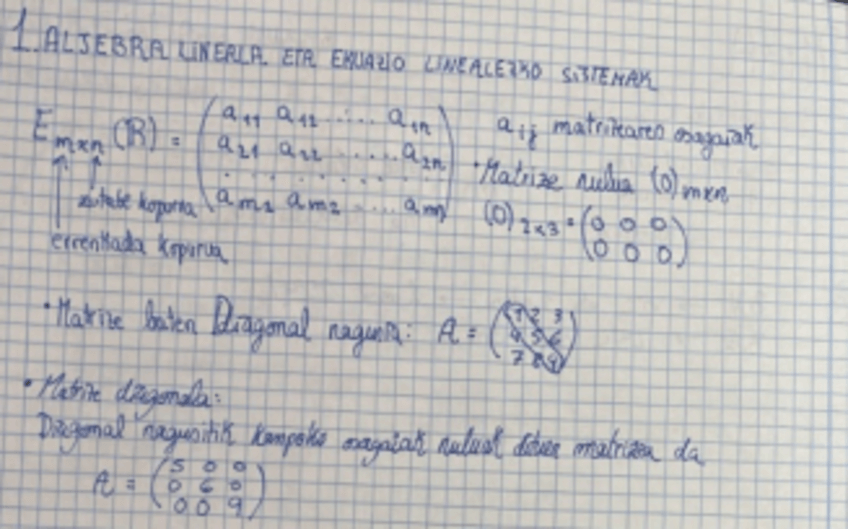 1. ALJEBRA LINEALA ETA EKUAZIO LINEALEZKO SISTEMAK
E_{mxn} (R) = ( a_{11} a_{12} ..... a_{1n}
a_{21} a_{22} ..... a_{2n}
. . . . . . . . .
a_{m1} a_{m2} .... a_{mn} )
zutabe kopurua
errenkada kopurua
a_{ij} matrizearen osagaiak
• Matrize nulua (0)_{mxn}
(0)_{2x3} = ( 0 0 0
0 0 0 )
• Matrize baten Diagonal nagusia: A = ( 1 2 3
4 5 6
7 8 9 )
• Matrize diagonala:
Diagonal nagusitik kanpoko osagaiak nuluak dituen matrizea da
A = ( 5 0 0
0 6 0
0 0 9 )